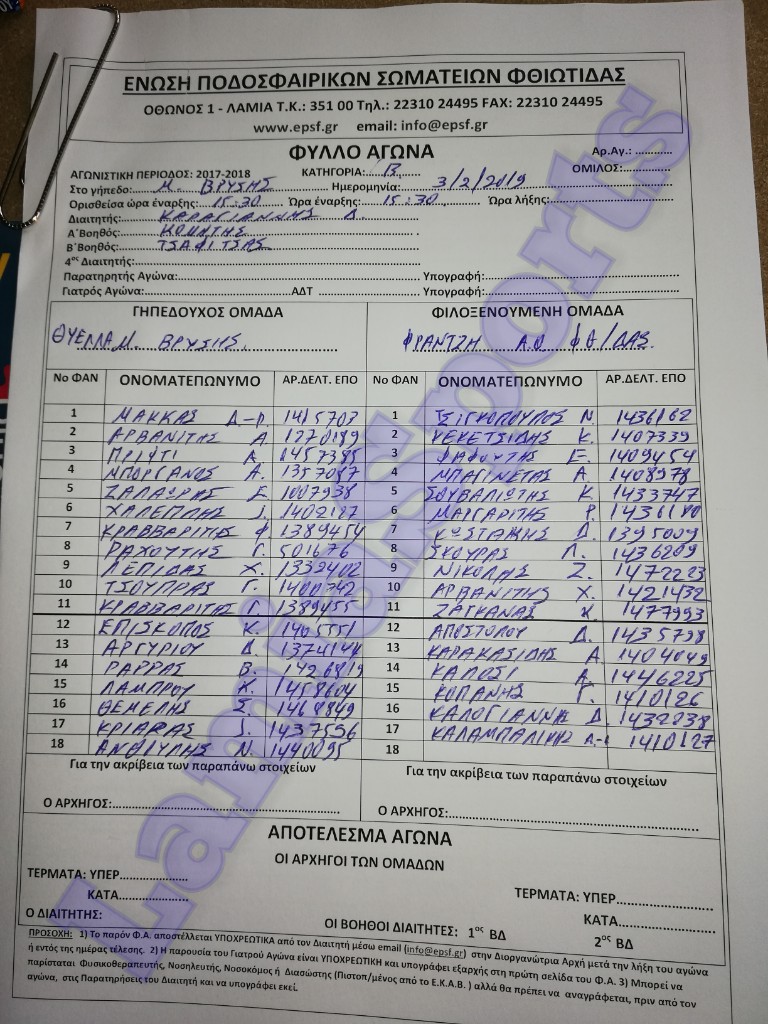 ΕΝΩΣΗ ΠΟΔΟΣΦΑΙΡΙΚΩΝ ΣΩΜΑΤΕΙΩΝ ΦΘΙΩΤΙΔΑΣ
ΟΘΩΝΟΣ 1 - ΛΑΜΙΑ Τ.Κ.: 351 00 Τηλ.: 22310 24495 FAX: 22310 24495
www.epsf.gr email: info@epsf.gr
ΦΥΛΛΟ ΑΓΩΝΑ
Αρ.Αγ.: ............
ΑΓΩΝΙΣΤΙΚΗ ΠΕΡΙΟΔΟΣ: 2017-2018 ΚΑΤΗΓΟΡΙΑ:..Β..... ΟΜΙΛΟΣ:............
Στο γήπεδο:...Μ. ΒΡΥΣΗΣ... Ημερομηνία:...3/2/2019...
Ορισθείσα ώρα έναρξης:..15:30... Ώρα έναρξης:...15:30... Ώρα λήξης:............
Διαιτητής:...ΚΑΡΑΓΙΑΝΝΗΣ Δ.
Α΄Βοηθός:...ΚΟΜΗΤΗΣ
Β΄Βοηθός:...ΤΣΑΦΙΤΣΑΣ
4ος Διαιτητής:............
Παρατηρητής Αγώνα:............ Υπογραφή:............
Γιατρός Αγώνα:............ΑΔΤ ............ Υπογραφή:............
ΓΗΠΕΔΟΥΧΟΣ ΟΜΑΔΑ ΦΙΛΟΞΕΝΟΥΜΕΝΗ ΟΜΑΔΑ
ΘΥΕΛΛΑ Μ. ΒΡΥΣΗΣ. ΦΡΑΝΤΖΗ Α.Ο Φθ/ΔΑΣ.
Νο ΦΑΝ ΟΝΟΜΑΤΕΠΩΝΥΜΟ ΑΡ.ΔΕΛΤ. ΕΠΟ Νο ΦΑΝ ΟΝΟΜΑΤΕΠΩΝΥΜΟ ΑΡ.ΔΕΛΤ. ΕΠΟ
1 ΜΑΚΚΑΣ 1415703 1 ΤΣΙΓΚΟΠΟΥΛΟΣ Ν. 1436162
2 ΑΡΒΑΝΙΤΗΣ Α 1270189 2 ΚΕΚΕΤΣΙΔΗΣ Κ. 1407339
3 ΠΡΙΦΤΙ Α. 1457385 3 Ε. 1409454
4 ΜΠΟΡΓΑΝΟΣ Α. 1357087 4 ΜΠΑΓΙΝΕΤΑΣ Α 1408978
5 ΖΑΛΑΩΡΑΣ Ε. 1007938 5 ΣΟΥΒΑΛΙΩΤΗΣ Κ. 1433747
6 ΧΑΛΕΠΛΗΣ 1402187 6 ΜΑΡΓΑΡΙΤΗΣ Ρ. 1431180
7 ΚΡΑΒΒΑΡΙΤΗΣ Φ. 1389454 7 ΚΩΣΤΑΚΗΣ Δ. 1395009
8 ΡΑΧΟΥΤΗΣ Γ. 501676 8 ΣΚΟΥΡΑΣ Λ. 1436209
9 ΛΕΠΙΔΑΣ Χ. 1339402 9 ΝΙΚΟΛΗΣ Ζ. 1472223
10 ΤΣΟΥΠΡΑΣ Γ. 1400742 10 ΑΡΒΑΝΙΤΗΣ Χ. 1421432
11 ΚΡΑΒΒΑΡΙΤΗΣ Γ. 1389455 11 ΖΑΓΚΑΝΑΣ Χ. 1477993
12 ΕΠΙΣΚΟΠΟΣ Κ. 1405551 12 ΑΠΟΣΤΟΛΟΥ Δ. 1435798
13 ΑΡΓΥΡΙΟΥ Δ. 1374144 13 ΚΑΡΑΚΑΣΙΔΗΣ Α. 1404049
14 ΡΑΡΡΑΣ Β. 1426819 14 ΚΑΠΟΣΙ Α. 1446225
15 ΛΑΜΠΡΟΥ Χ. 1458604 15 ΚΟΠΑΝΗΣ Γ. 1410126
16 ΘΕΜΕΛΗΣ Σ. 1468849 16 ΚΑΛΟΓΙΑΝΝΗΣ Δ. 1432838
17 ΚΡΙΑΡΑΣ 1437556 17 ΚΑΛΑΜΠΑΛΙΚΗΣ 1410127
18 ΑΝΘΟΥΛΗΣ Ν. 1440095 18
Για την ακρίβεια των παραπάνω στοιχείων Για την ακρίβεια των παραπάνω στοιχείων
Ο ΑΡΧΗΓΟΣ:............ Ο ΑΡΧΗΓΟΣ:............
ΑΠΟΤΕΛΕΣΜΑ ΑΓΩΝΑ
ΟΙ ΑΡΧΗΓΟΙ ΤΩΝ ΟΜΑΔΩΝ
ΤΕΡΜΑΤΑ: ΥΠΕΡ............ ΤΕΡΜΑΤΑ: ΥΠΕΡ............
ΚΑΤΑ............ ΚΑΤΑ............
Ο ΔΙΑΙΤΗΤΗΣ: ΟΙ ΒΟΗΘΟΙ ΔΙΑΙΤΗΤΕΣ: 1ος ΒΔ 2ος ΒΔ
ΠΡΟΣΟΧΗ: 1) Το παρόν Φ.Α. αποστέλλεται ΥΠΟΧΡΕΩΤΙΚΑ από τον Διαιτητή μέσω email (info@epsf.gr) στην Διοργανώτρια Αρχή μετά την λήξη του αγώνα
ή εντός της ημέρας τέλεσης. 2) Η παρουσία του Γιατρού Αγώνα είναι ΥΠΟΧΡΕΩΤΙΚΗ και υπογράφει εξαρχής στη πρώτη σελίδα του Φ.Α. 3) Μπορεί να
παρίσταται Φυσικοθεραπευτής, Νοσηλευτής, Νοσοκόμος ή Διασώστης (Πιστοπ/μένος από το Ε.Κ.Α.Β. ) αλλά θα πρέπει να αναγράφεται, πριν από τον
αγώνα, στις Παρατηρήσεις του Διαιτητή και να υπογράφει εκεί.
LamiaSports